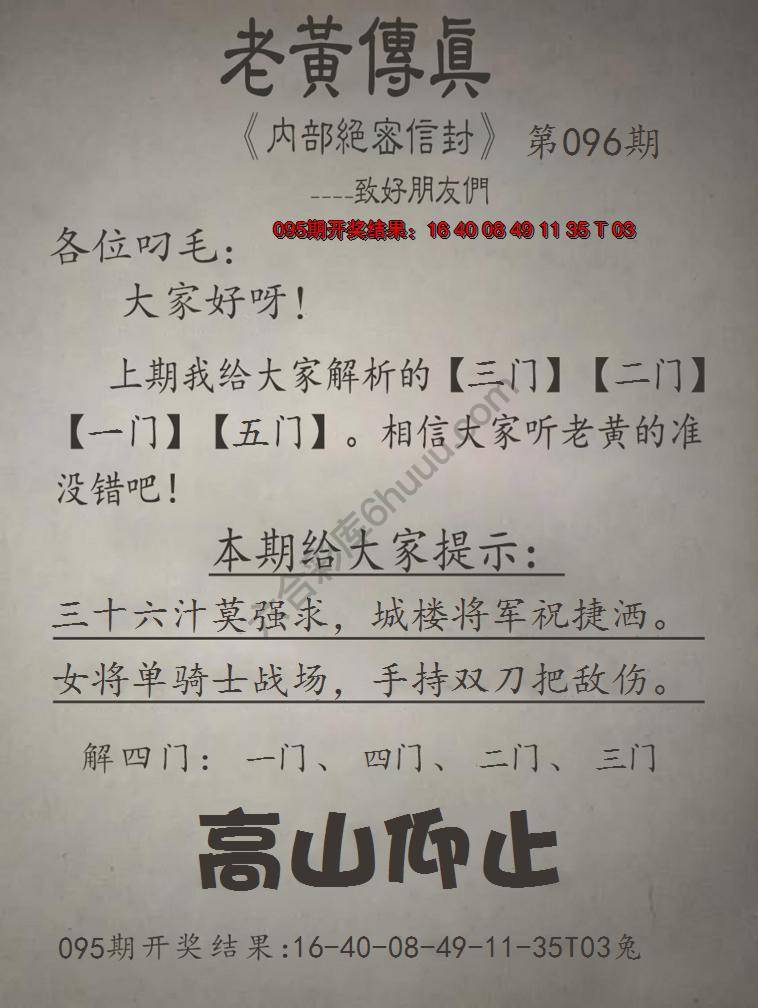 老黃傳眞
《内部絕密信封》 第096期
----致好朋友們
095期开奖结果：16 40 08 49 11 35 T 03
各位叼毛：
大家好呀！
上期我给大家解析的【三门】【二门】
【一门】【五门】。相信大家听老黄的准
没错吧！
本期给大家提示：
三十六汁莫强求，城楼将军祝捷洒。
女将单骑士战场，手持双刀把敌伤。
解四门：一门、四门、二门、三门
高山仰止
095期开奖结果:16-40-08-49-11-35T03兔
六合彩库6huuu.com